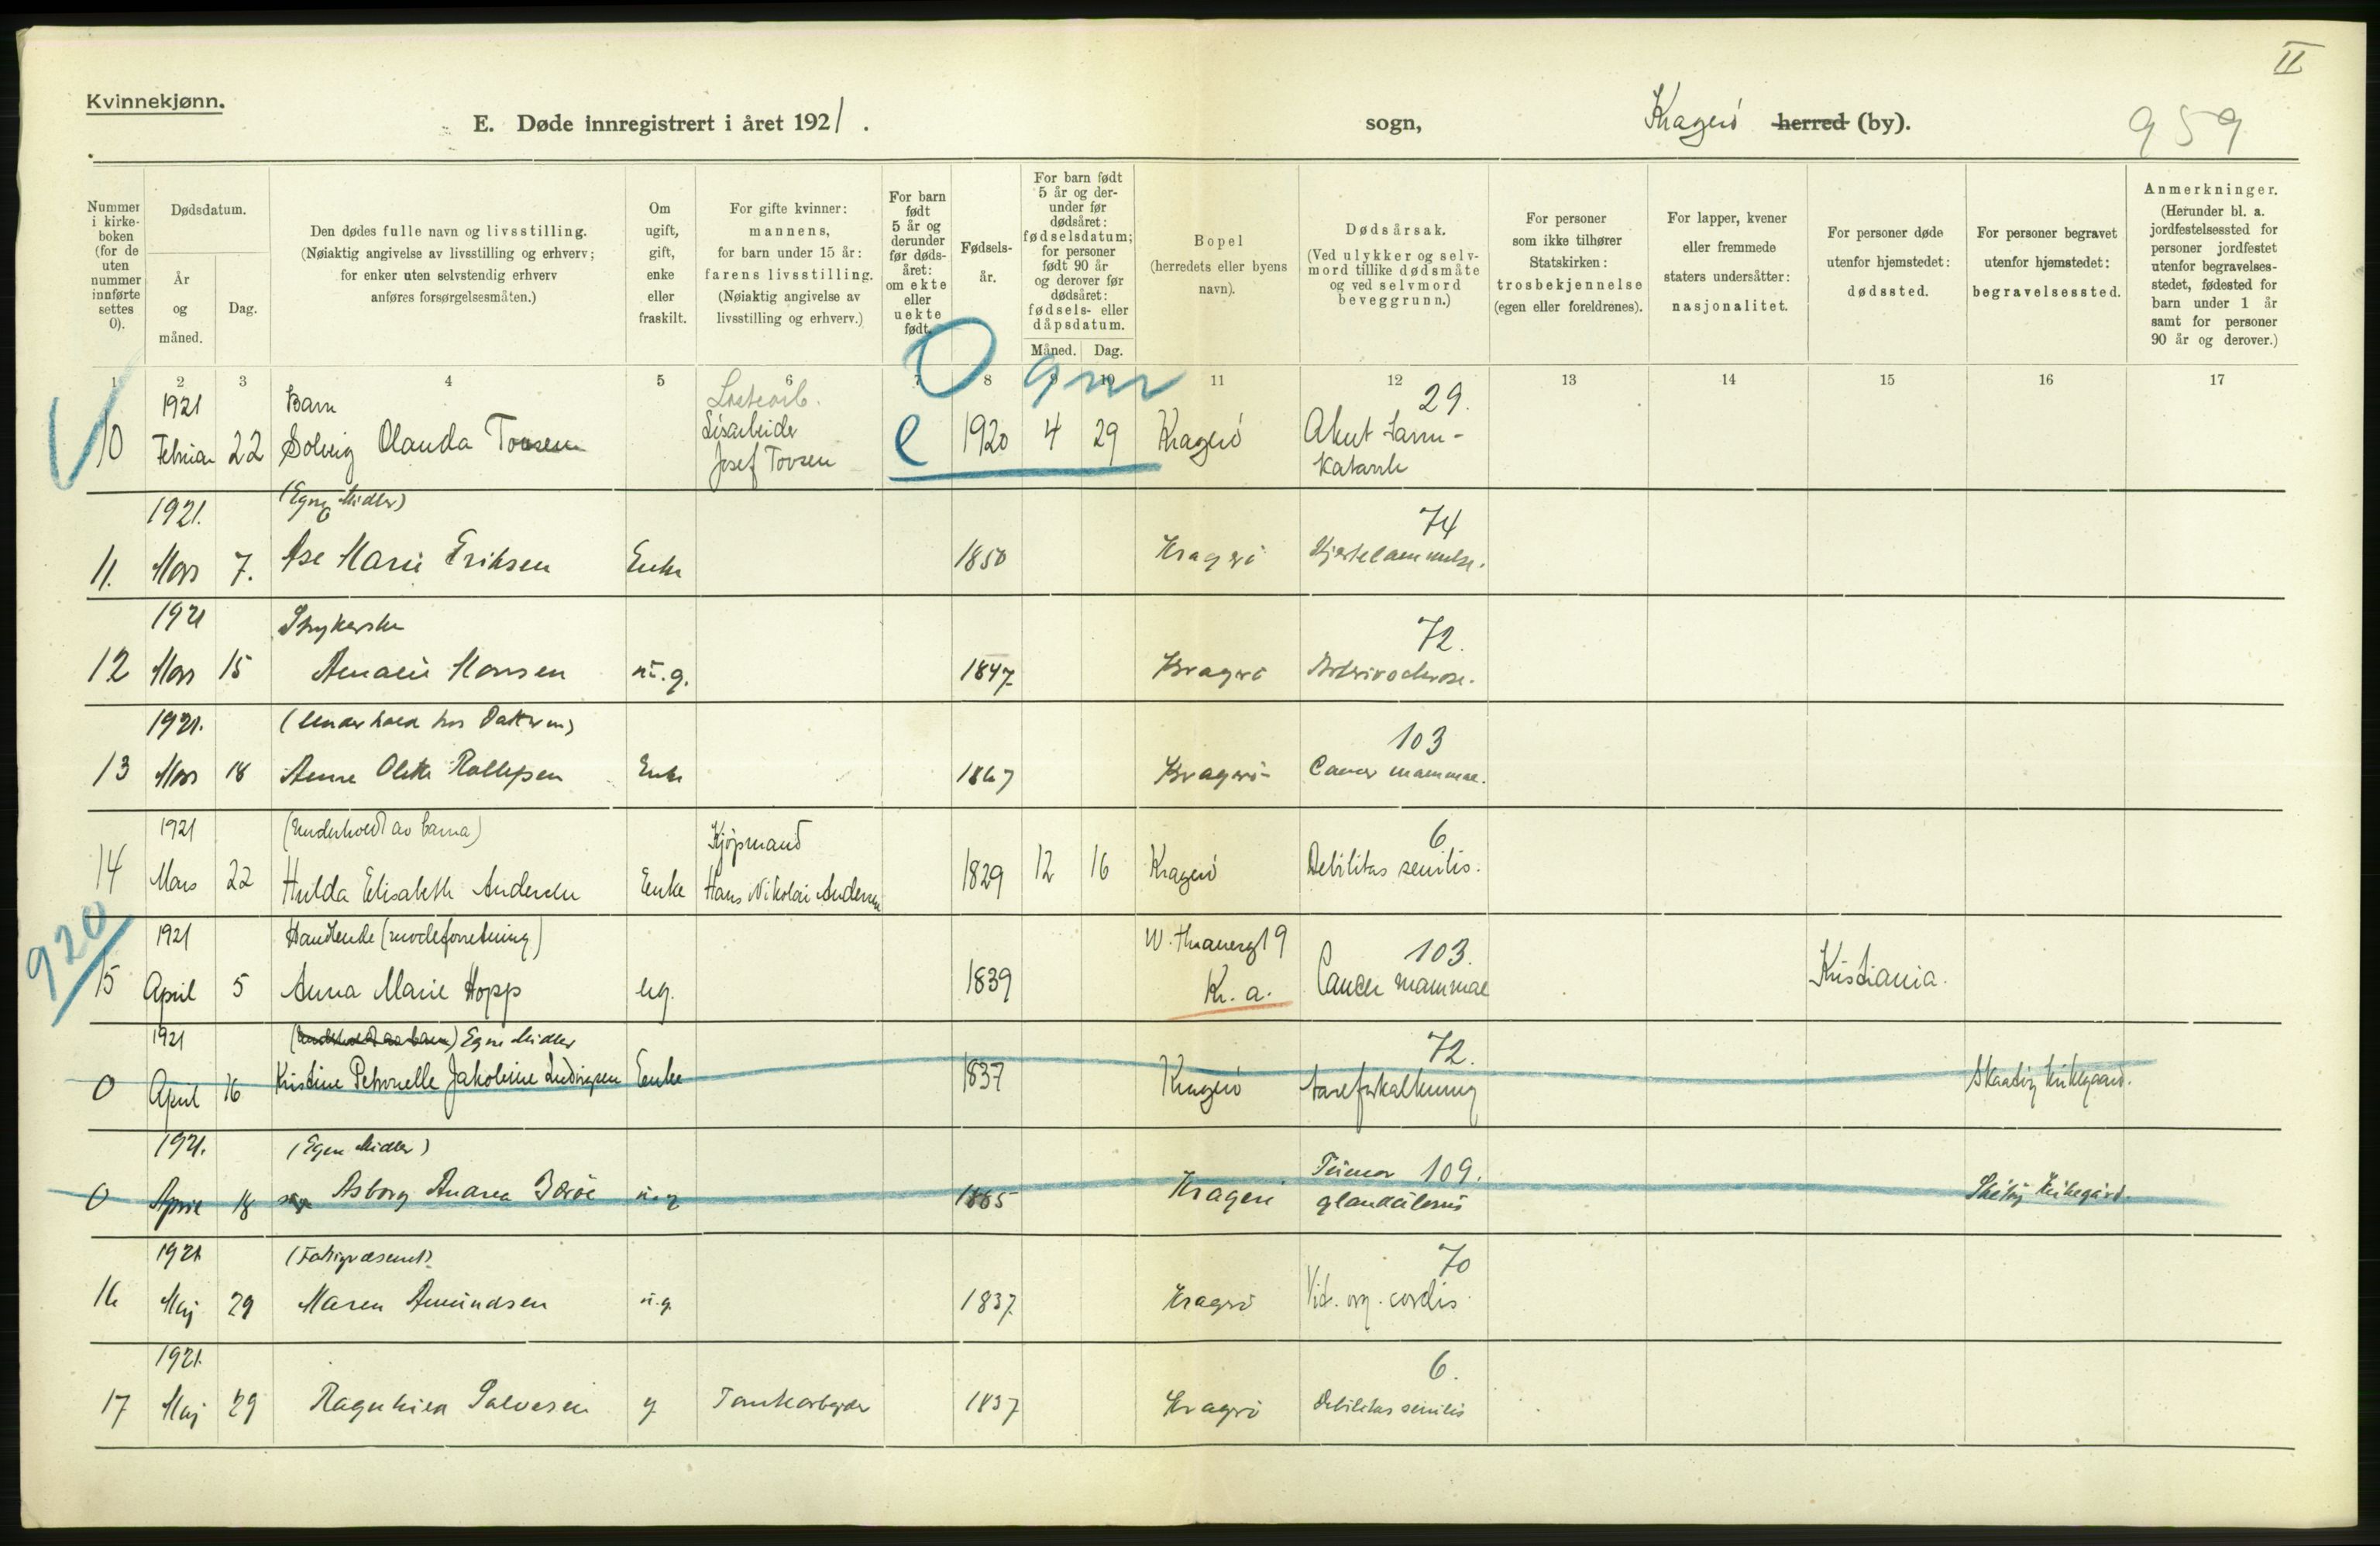 II
Kvinnekjønn.
E. Døde innregistrert i året 1921. sogn, Kragerö herred (by).
959
Nummer i kirkeboken (for de uten nummer innførte settes 0).
Dødsdatum.
År og måned.
Dag.
Den dødes fulle navn og livsstilling.
(Nøiaktig angivelse av livsstilling og erhverv;
for enker uten selvstendig erhverv
anføres forsørgelsesmåten.)
Om ugift, gift, enke eller fraskilt.
For gifte kvinner:
mannens,
for barn under 15 år:
farens livsstilling.
(Nøiaktig angivelse av
livsstilling og erhverv.)
For barn født 5 år og derunder før dødsåret: om ekte eller uekte født.
Fødselsår.
For barn født 5 år og derunder før dødsåret: fødselsdatum; for personer født 90 år og derover før dødsåret: fødsels- eller dåpsdatum.
Måned. Dag.
Bopel
(herredets eller byens
navn).
Dødsårsak.
(Ved ulykker og selvmord tillike dødsmåte og ved selvmord beveggrunn.)
For personer
som ikke tilhører
Statskirken:
trosbekjennelse
(egen eller foreldrenes).
For lapper, kvener
eller fremmede
staters undersåtter:
nasjonalitet.
For personer døde
utenfor hjemstedet:
dødssted.
For personer begravet
utenfor hjemstedet:
begravelsessted.
Anmerkninger.
(Herunder bl. a.
jordfestelsessted for
personer jordfestet
utenfor begravelses-
stedet, fødested for
barn under 1 år
samt for personer
90 år og derover.)
1 2 3 4 5 6 7 8 9 10 11 12 13 14 15 16 17
0 9 m
1921 Barn 29.
10 Februar 22 Solveig Olanda Tovsen Lisarbeider Josef Tovsen e 1920 4 29 Kragerö Akut Tarm-
Katarrh
1921. (Egne Midler) 74
11. Mars 7. Åse Marie Eriksen Enke 1850 Kragerö Hjertelammelse.
1921 Strykerske 72.
12 Mars 15 Amalie Hansen u.g. 1847 Kragerö Arteriosclerose.
1921. (Underhold hos Datteren) 103
13 Mars 18 Anne Olette Rollefsen Enke 1867 Kragerö Cancer mammae.
1921 (Underholdt av barna) Kjøpmand 6
14 Mars 22 Hulda Elisabeth Andersen Enke Hans Nikolai Andersen 1829 12 16 Kragerö Debilitas senilis.
920
1921 Handlende (modeforretning) W. Thranesgt 9 103.
15 April 5 Anna Marie Hopp ug. 1839 Kr. a. Cancer mammae Kristiania.
1921 (Underholdt av barn) Egne Midler 72.
0 April 16 Kristine Petronelle Jakobine Ludvigsen Enke 1837 Kragerö Aareforkalkning Skaatöy Kirkegaard.
1921. (Egne Midler) Tumor 109.
0 April 18 Asborg Andrea u.g 1885 Kragerö glandulosus Skåtöy Kirkegård.
1921 (Fattigvæsenet) 70
16 Maj 29 Maren Amundsen u.g. 1837 Kragerö Vit. org. cordis.
1921. 6.
17 Maj 29 Ragnhild Salvesen g Tomtearbejder 1837 Kragerö Debilitas senilis